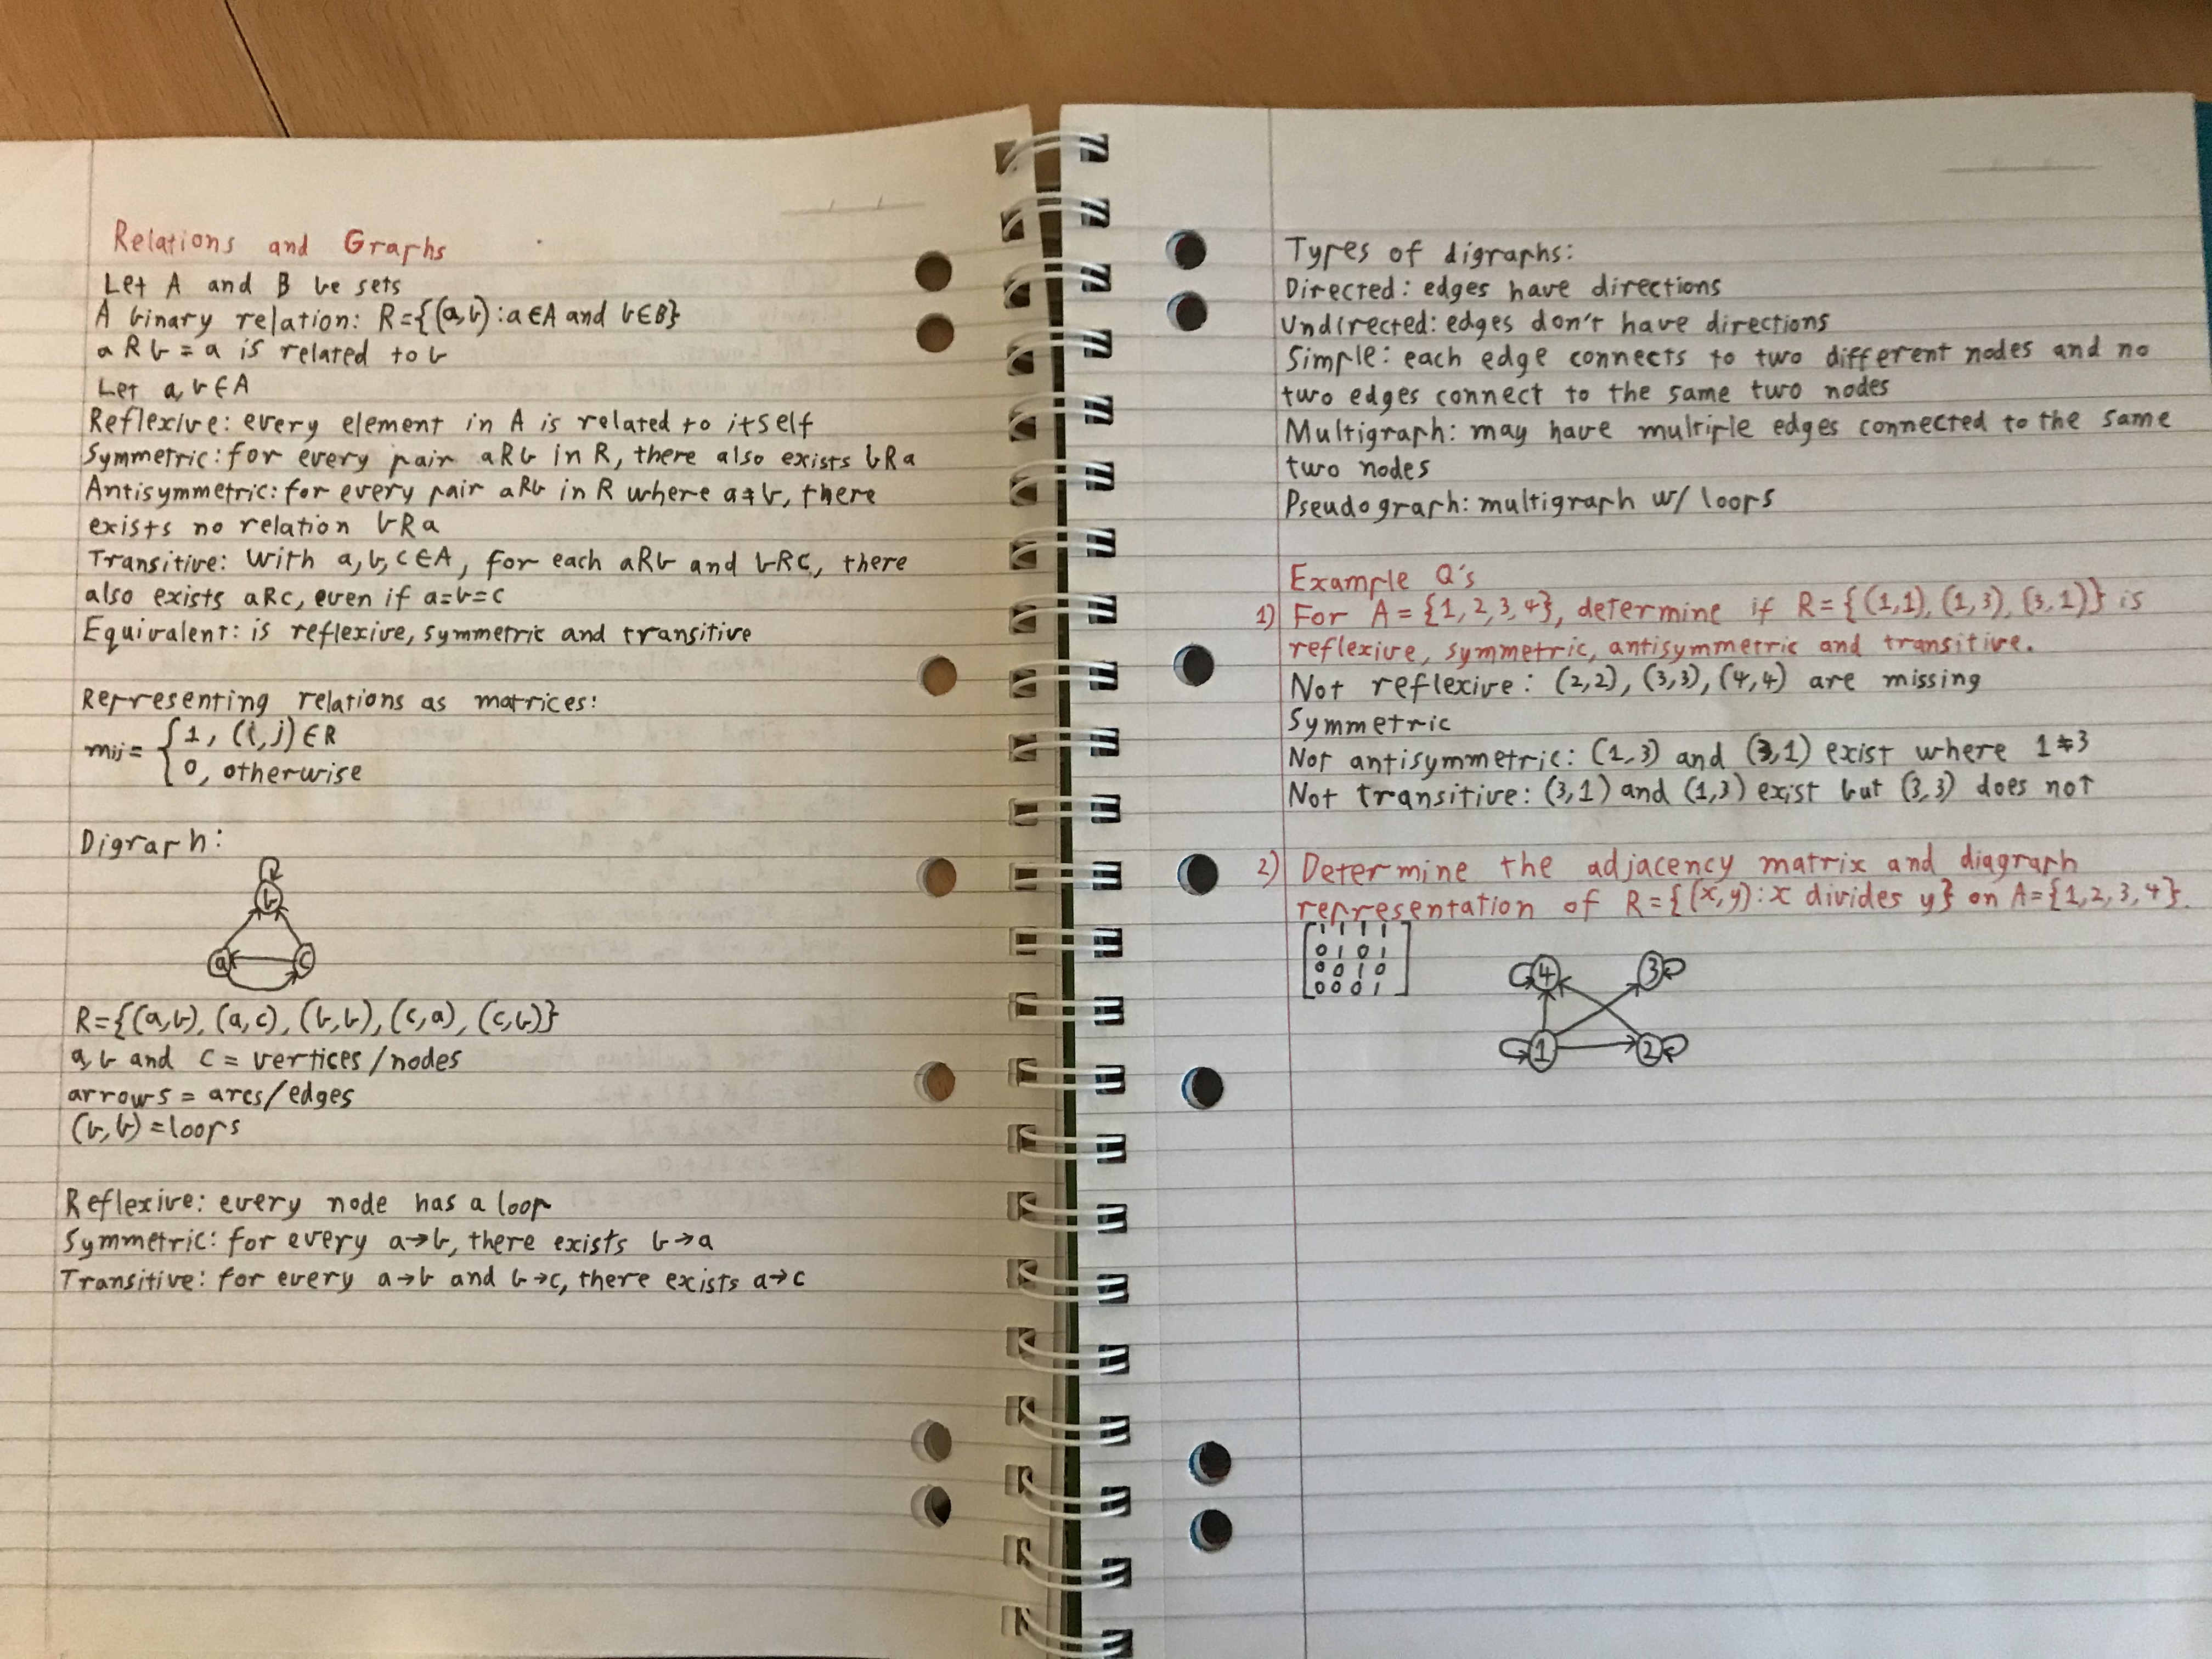 Relations and Graphs
Let A and B be sets
A binary relation: R={(a,b):a∈A and b∈B}
aRb = a is related to b
Let a,b∈A
Reflexive: every element in A is related to itself
Symmetric: for every pair aRb in R, there also exists bRa
Antisymmetric: for every pair aRb in R where a≠b, there
exists no relation bRa
Transitive: with a,b,c∈A, for each aRb and bRc, there
also exists aRc, even if a=b=c
Equivalent: is reflexive, symmetric and transitive
Representing relations as matrices:
mij= {1, (i,j)∈R
0, otherwise
Digraph:
b
a c
R={(a,b), (a,c), (b,b), (c,a), (c,b)}
a,b and c = vertices/nodes
arrows = arcs/edges
(b,b)=loops
Reflexive: every node has a loop
Symmetric: for every a→b, there exists b→a
Transitive: for every a→b and b→c, there exists a→c
Types of digraphs:
Directed: edges have directions
Undirected: edges don't have directions
Simple: each edge connects to two different nodes and no
two edges connect to the same two nodes
Multigraph: may have multiple edges connected to the same
two nodes
Pseudograph: multigraph w/ loops
Example Q's
1) For A={1,2,3,4}, determine if R={(1,1), (1,3), (3,1)} is
reflexive, symmetric, antisymmetric and transitive.
Not reflexive: (2,2), (3,3), (4,4) are missing
Symmetric
Not antisymmetric: (1,3) and (3,1) exist where 1≠3
Not transitive: (3,1) and (1,3) exist but (3,3) does not
2) Determine the adjacency matrix and diagraph
representation of R={(x,y):x divides y} on A={1,2,3,4}.
1 1 1 1
0 1 0 1
0 0 1 0
0 0 0 1
4 3
1 2